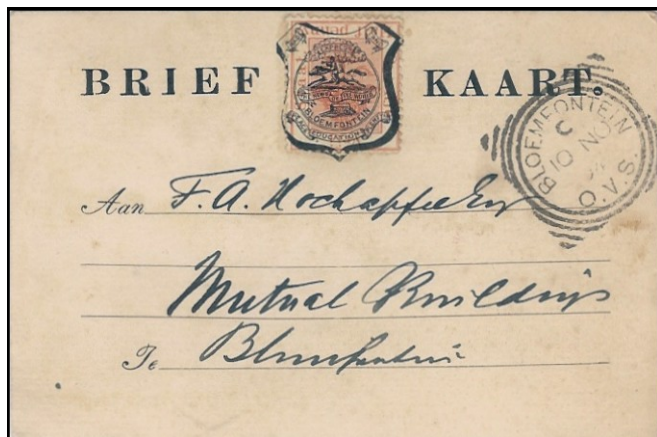 BRIEF KAART.
BLOEMFONTEIN
BLOEMFONTEIN O.V.S.
C
10 NO
Aan F. A. Hochapfel Esq
Mutual Buildings
Te Bloemfontein